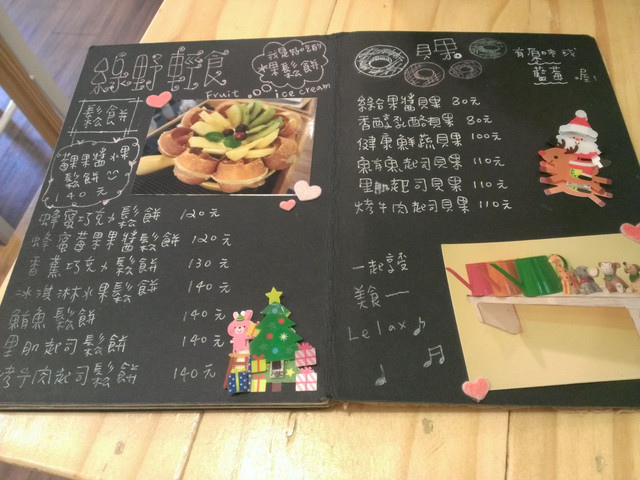 綠野輕食
我是好吃的
水果鬆餅
Fruit ice cream
鬆餅
莓果果醬水果
鬆餅
140元
蜂蜜巧克力鬆餅 120元
蜂蜜莓果果醬鬆餅 120元
香蕉巧克力鬆餅 130元
冰淇淋水果鬆餅 140元
鮪魚鬆餅 140元
里肌起司鬆餅 140元
烤牛肉起司鬆餅 140元
貝果
有原味或
藍莓喔!
綜合果醬貝果 80元
香醇乳酪貝果 80元
健康鮮蔬貝果 100元
鮪魚起司貝果 110元
里肌起司貝果 110元
烤牛肉起司貝果 110元
一起享受
美食~
Lelax